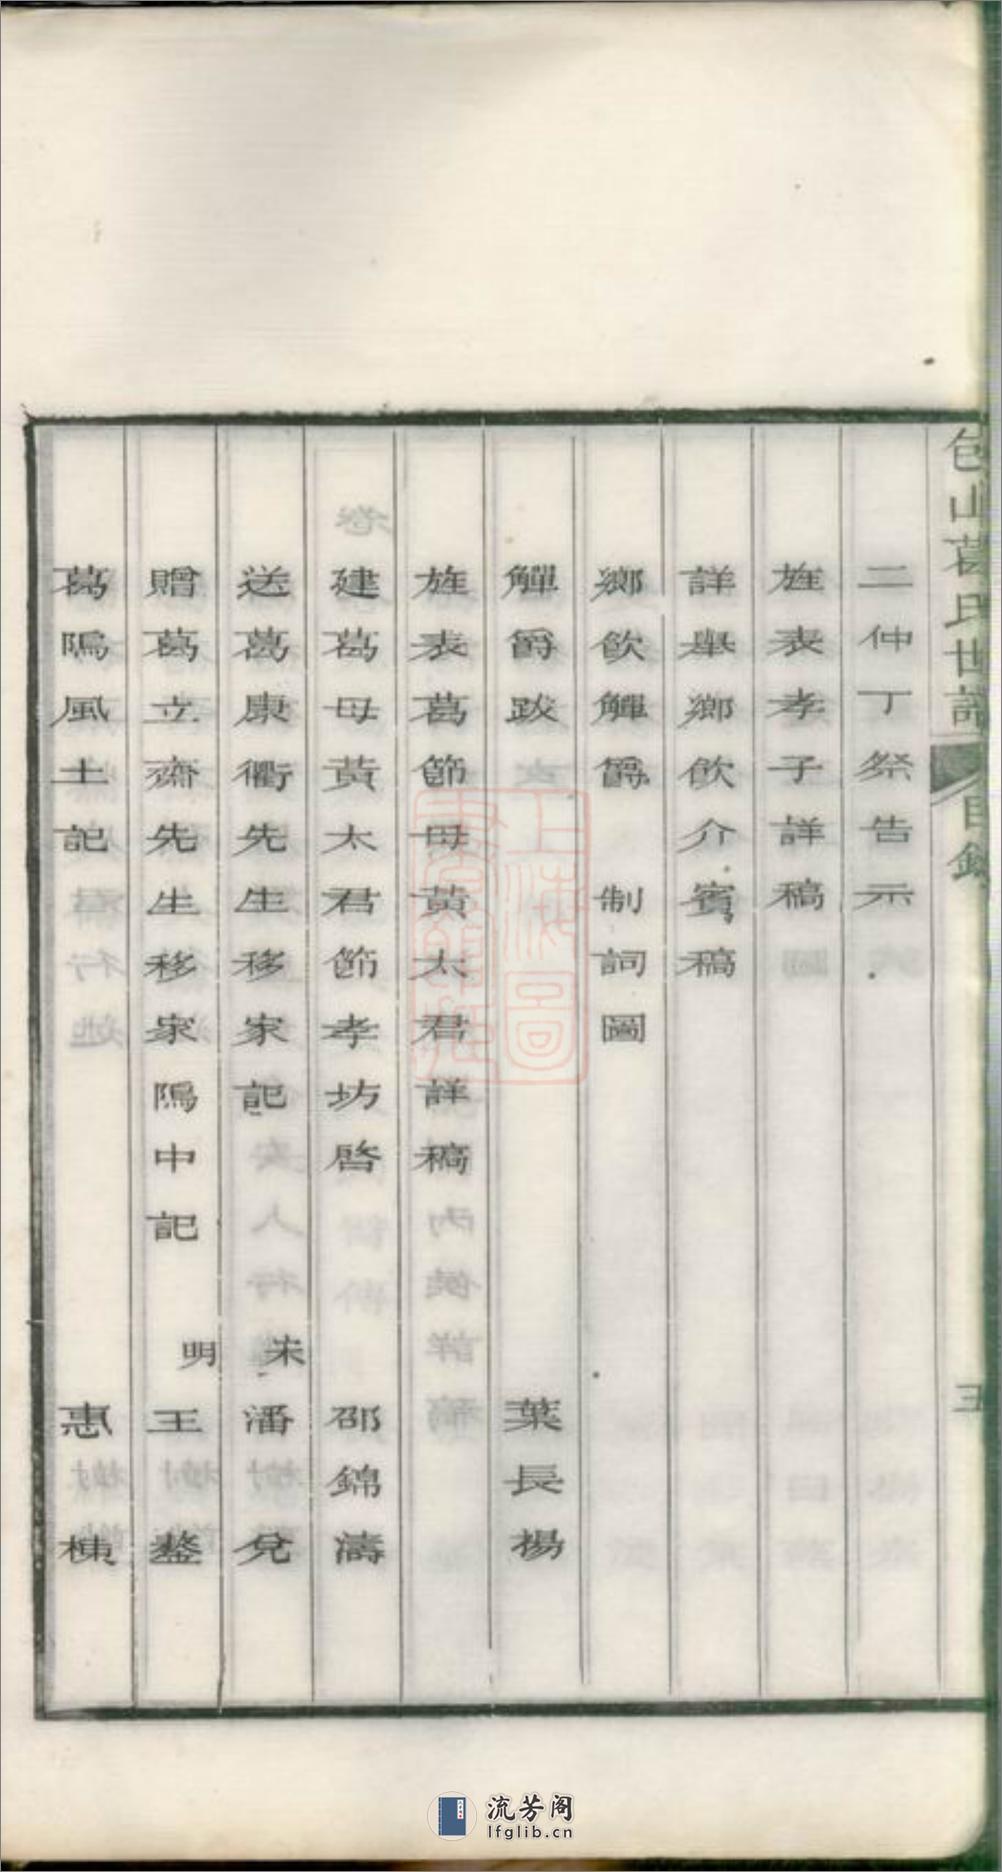 包山葛氏世譜
目錄
五
二仲丁祭告示
旌表孝子詳稿
詳舉鄉飲介賓稿
鄉飲觶爵 制詞圖
觶爵跋 葉長揚
旌表葛節母黃太君詳稿
建葛母黃太君節孝坊啓 邵錦濤
送葛康衢先生移家記 宋 潘兌
贈葛立齋先生移家隖中記 明 王鏊
葛隖風土記 惠棟
上海圖書館藏
流芳阁
lfglib.cn